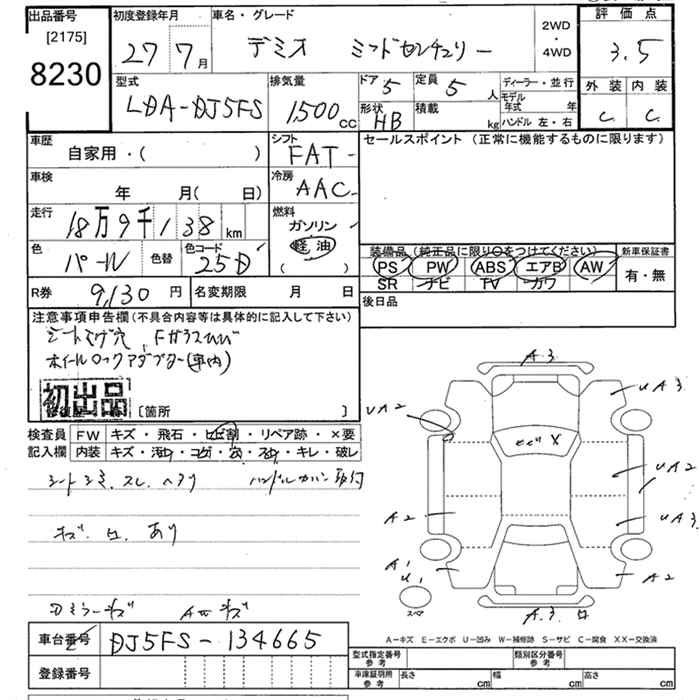 出品番号 初度登録年月 車名・グレード 評価点
[2175]
8230 27 7月 デミオ ミッドセンチュリー 2WD・4WD 3.5
型式 排気量 ドア 5 定員 5人 ディーラー・並行 外装 内装
LDA-DJ5FS 1,500cc 形状 HB 積載 kg モデル年式 年 C C
ハンドル 左・右
車歴 シフト セールスポイント (正常に機能するものに限ります)
自家用・( ) FAT
車検 冷房
年 月( 日) AAC
走行 燃料
18万9千138km ガソリン
軽油
( )
色 パール 色替 色コード 25D
装備品 (純正品に限り○をつけてください) 新車保証書
PS PW ABS エアB AW 有・無
SR ナビ TV カワ
R券 9,130円 名変期限 月 日 後日品
注意事項申告欄(不具合内容等は具体的に記入して下さい)
シートコゲ穴 Fガラスひび
ホイールロックアダプター(車内)
初出品
[箇所 ]
検査員 FW キズ・飛石・ヒビ割・リペア跡・×要
記入欄 内装 キズ・汚れ・コゲ・穴・スレ・キレ・破レ
シートシミ、スレ、ヘタリ ハンドルカバー取付
キズ、凹、あり
A3
UA2
UA3
ヒビX
UA2
A2
UA3
A1
U1
A2
スペア
A3
A-キズ E-エクボ U-凹み W-補修跡 S-サビ C-腐食 XX-交換済
車台番号 DJ5FS-134665
登録番号
型式指定番号 参考 類別区分番号 参考
車庫証明用 参考 長さ cm 幅 cm 高さ cm